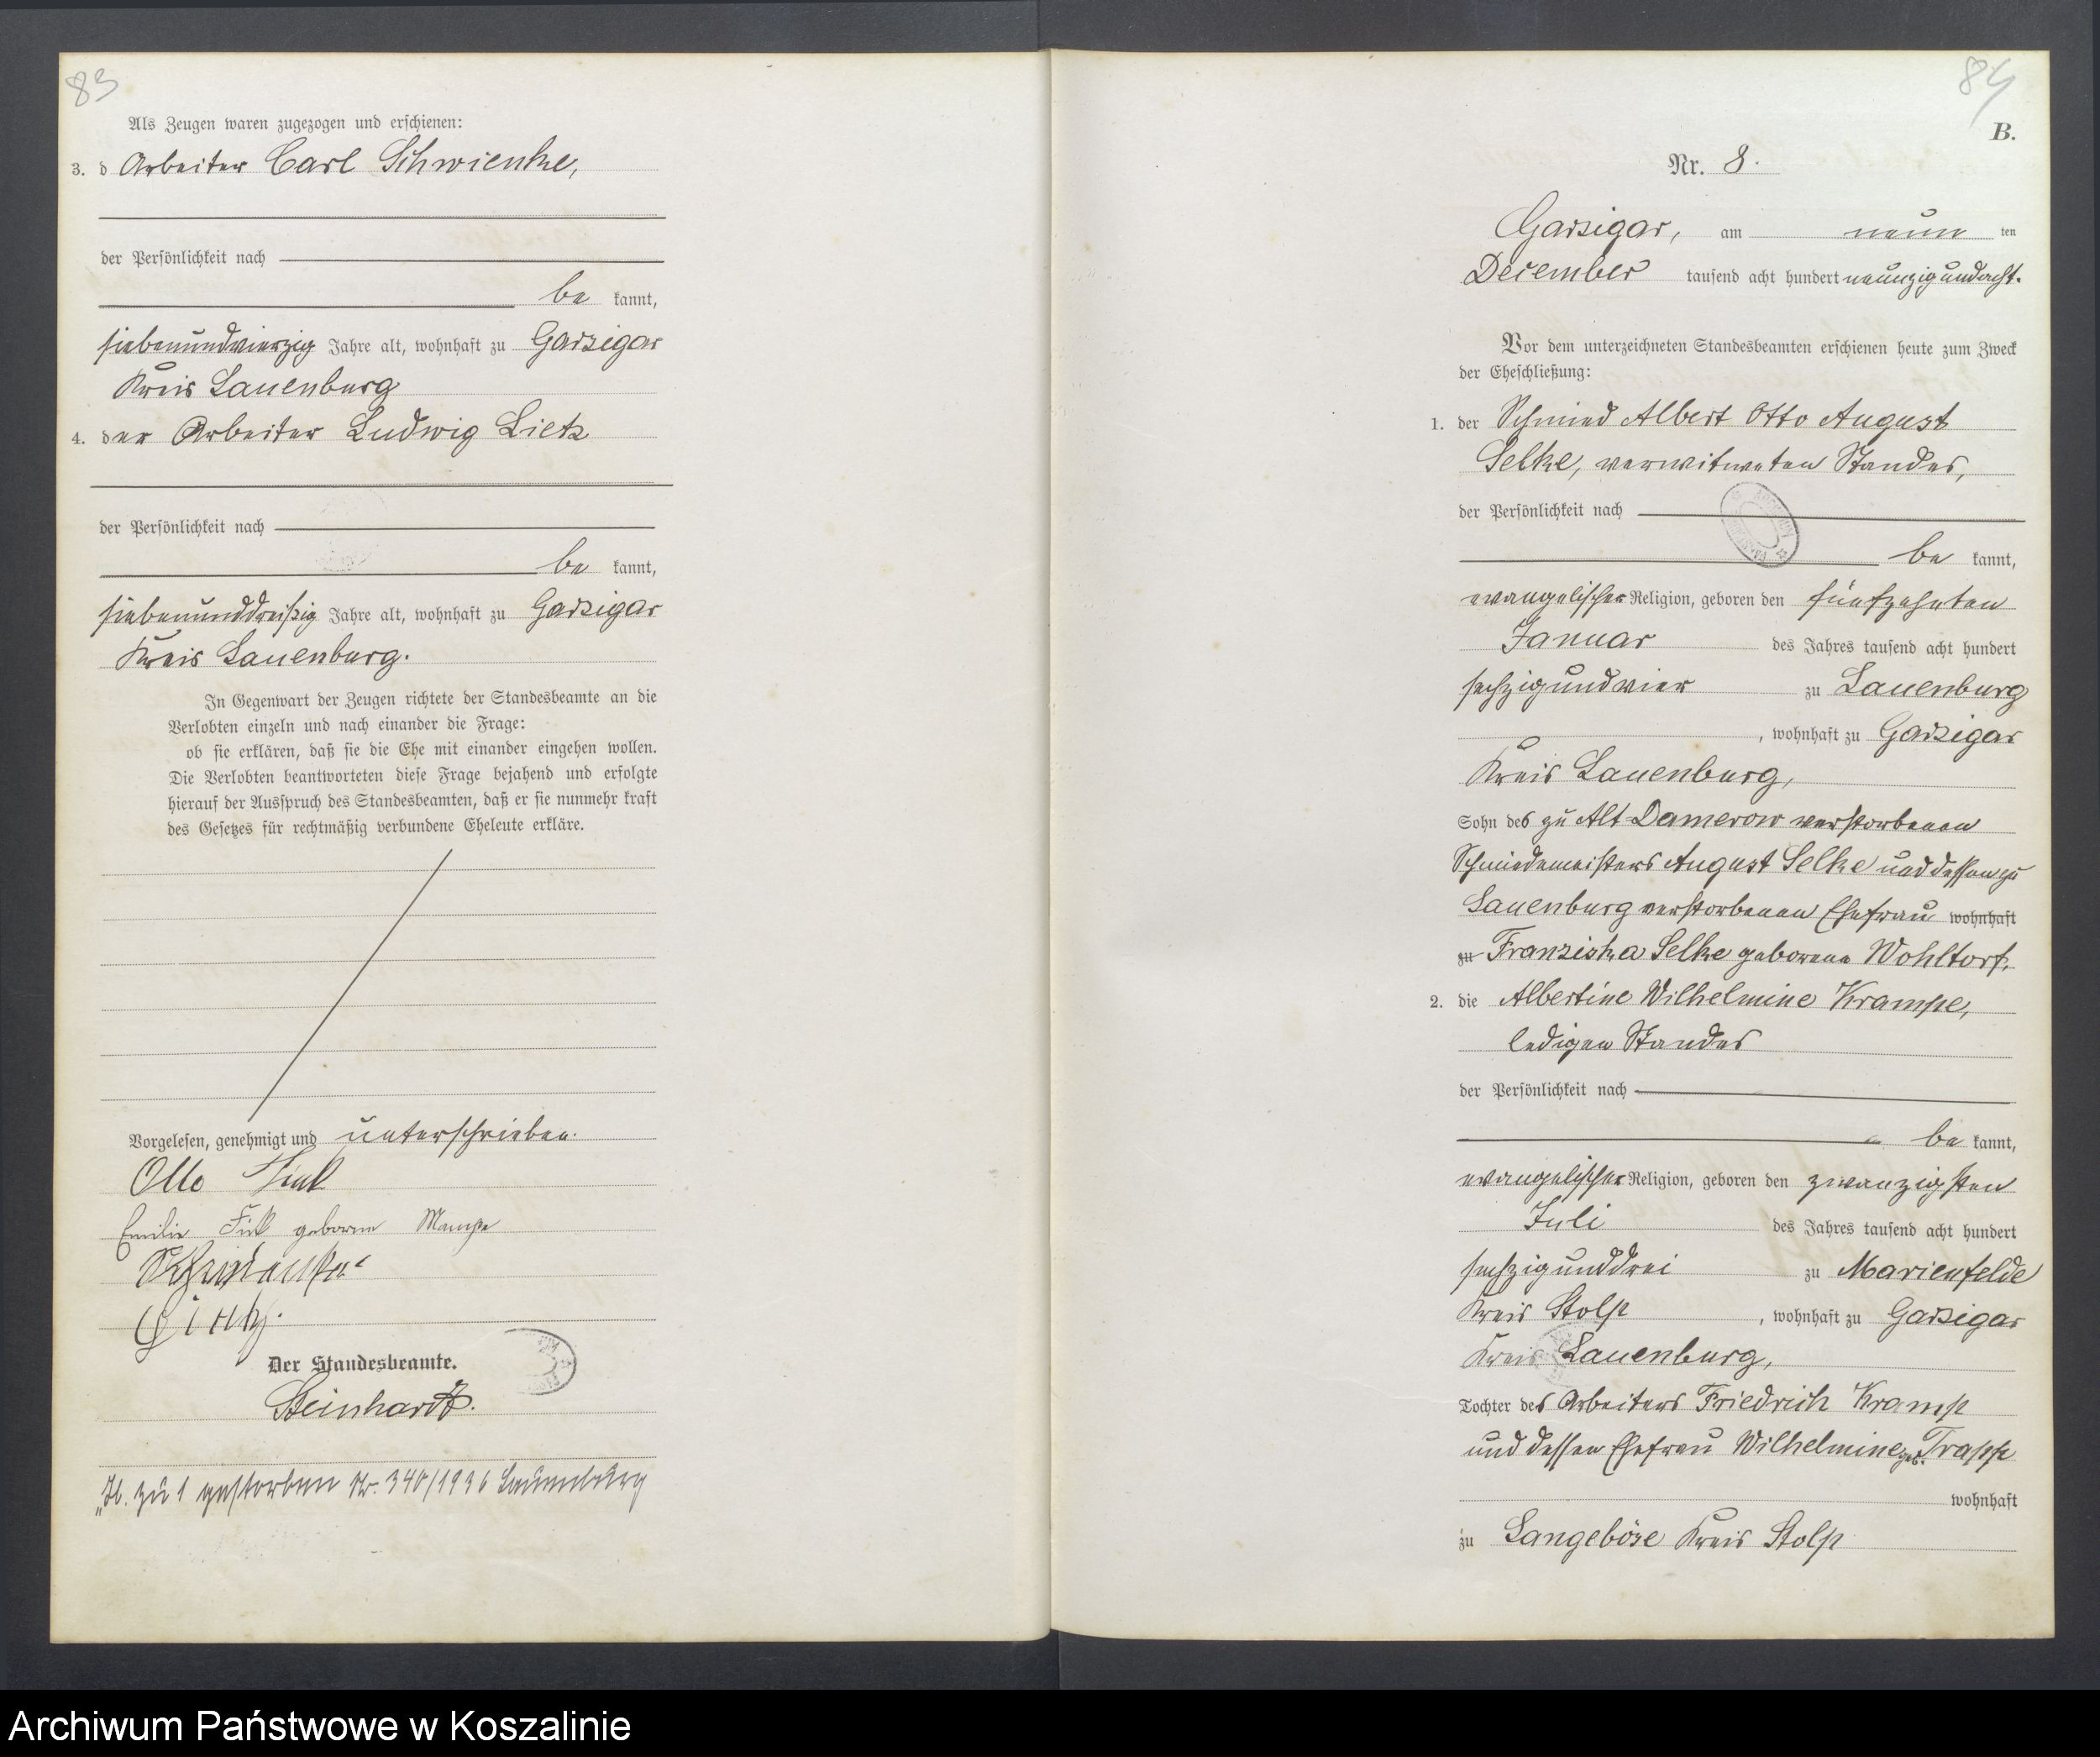 83
Als Zeugen waren zugezogen und erschienen:
3. d Arbeiter Carl Schwienke,
der Persönlichkeit nach
be kannt,
siebenundvierzig Jahre alt, wohnhaft zu Garzigar
Kreis Lauenburg
4. der Arbeiter Ludwig Lietz
der Persönlichkeit nach
be kannt,
siebenunddreißig Jahre alt, wohnhaft zu Garzigar
Kreis Lauenburg.
In Gegenwart der Zeugen richtete der Standesbeamte an die
Verlobten einzeln und nach einander die Frage:
ob sie erklären, daß sie die Ehe mit einander eingehen wollen.
Die Verlobten beantworteten diese Frage bejahend und erfolgte
hierauf der Ausspruch des Standesbeamten, daß er sie nunmehr kraft
des Gesetzes für rechtmäßig verbundene Eheleute erkläre.
Vorgelesen, genehmigt und unterschrieben.
Otto
Emilie geborene
Der Standesbeamte.
Steinhardt.
zu 1 gestorben Nr. 340/1936 Lauenburg
84
B.
Nr. 8.
Garzigar, am neun ten
December tausend acht hundert neunzigundacht.
Vor dem unterzeichneten Standesbeamten erschienen heute zum Zweck
der Eheschließung:
1. der Schmied Albert Otto August
Selke, verwitweten Standes,
der Persönlichkeit nach
be kannt,
evangelischer Religion, geboren den fünfzehnten
Januar des Jahres tausend acht hundert
sechzigundvier zu Lauenburg
, wohnhaft zu Garzigar
Kreis Lauenburg,
Sohn des zu Alt-Damerow verstorbenen
Schmiedemeisters August Selke und dessen zu
Lauenburg verstorbenen Ehefrau wohnhaft
zu Franziska Selke geborene Wohltorf.
2. die Albertine Wilhelmine Krampe,
ledigen Standes
der Persönlichkeit nach
be kannt,
evangelischer Religion, geboren den zwanzigsten
Juli des Jahres tausend acht hundert
sechzigunddrei zu Marienfelde
Kreis Stolp, wohnhaft zu Garzigar
Kreis Lauenburg,
Tochter des Arbeiters Friedrich Kramp
und dessen Ehefrau Wilhelmine geb. Trapp
wohnhaft
zu Langeböse Kreis Stolp
Archiwum Państwowe w Koszalinie